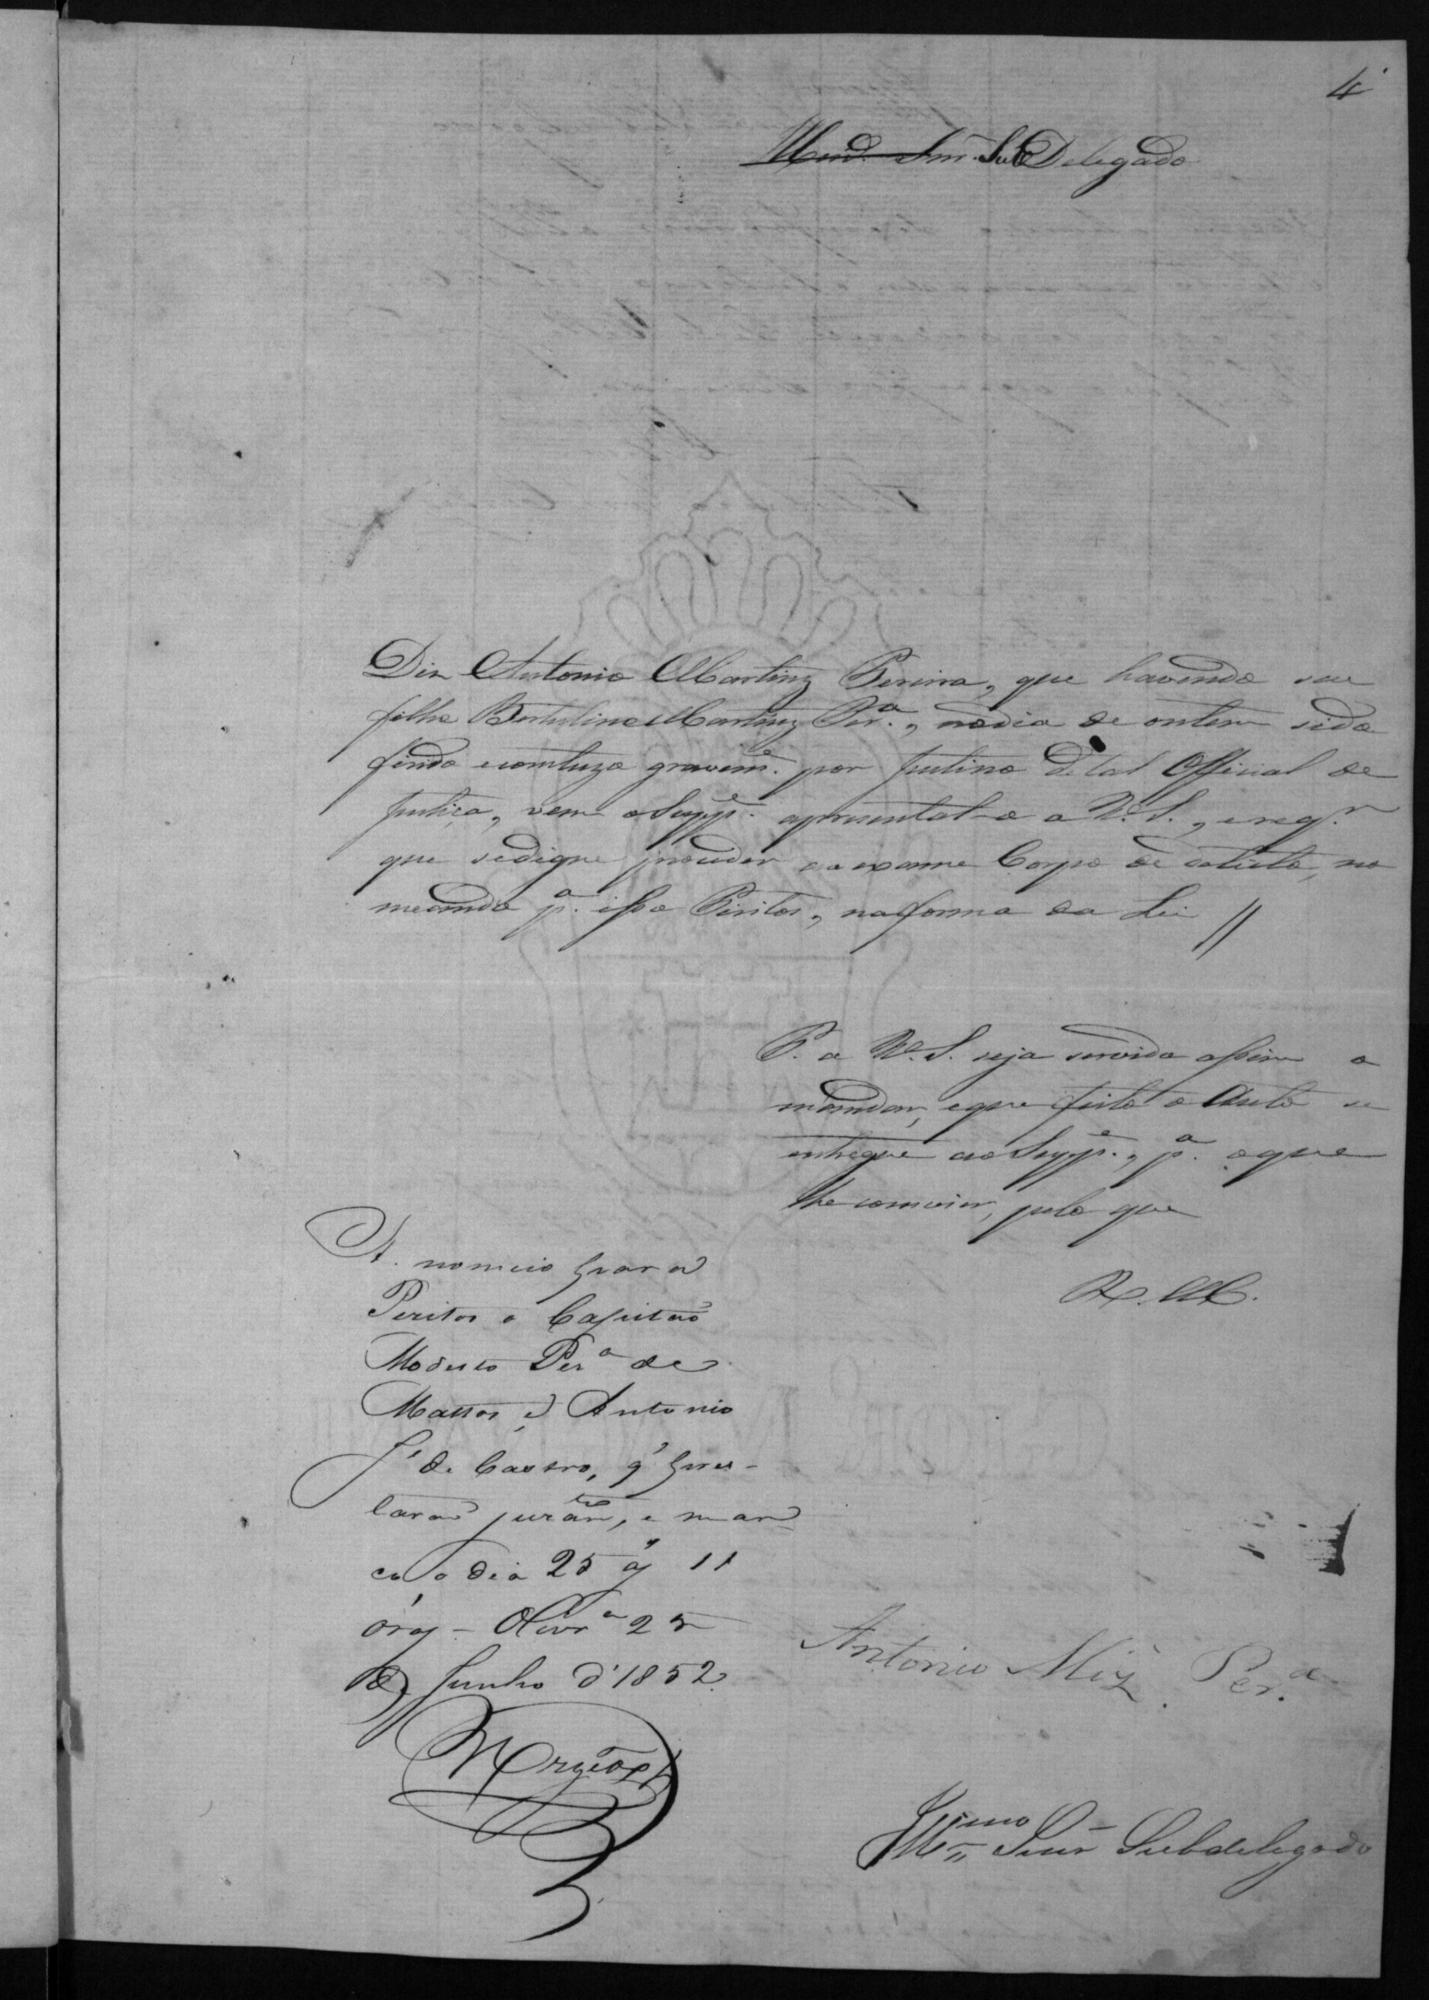 4
Snr. SubDelegado
Diz Antonio Martinz Pereira, que havendo seu
filho Bertulino Martinz Per.ª, nodia de ontem sido
firido econtuzo gravem.e por Justino de tal Official de
Justiça, vem o Supp.e apresental-o a V. S., ereq.r
que sedigne proceder ao exame Corpo de delicto, no
meando p.ª isso Piritos, naforma da Lei //
P. a V. S. seja servido assim o
mandar, eque feito o Auto se
entregue ao Supp.e, p.ª oque
lhe convier, pelo que
R. M.
A. nomeio para
Peritos o Capitão
Modesto Per.ª de
Mattos, e Antonio
J.e de Castro, q' pres-
tarão juram.to, e mar
co o dia 25 ás 11
oras - Olivr.ª 25
de Junho d'1852.
Antonio Miz Per.ª
Ill.mo Snr Subdelegado